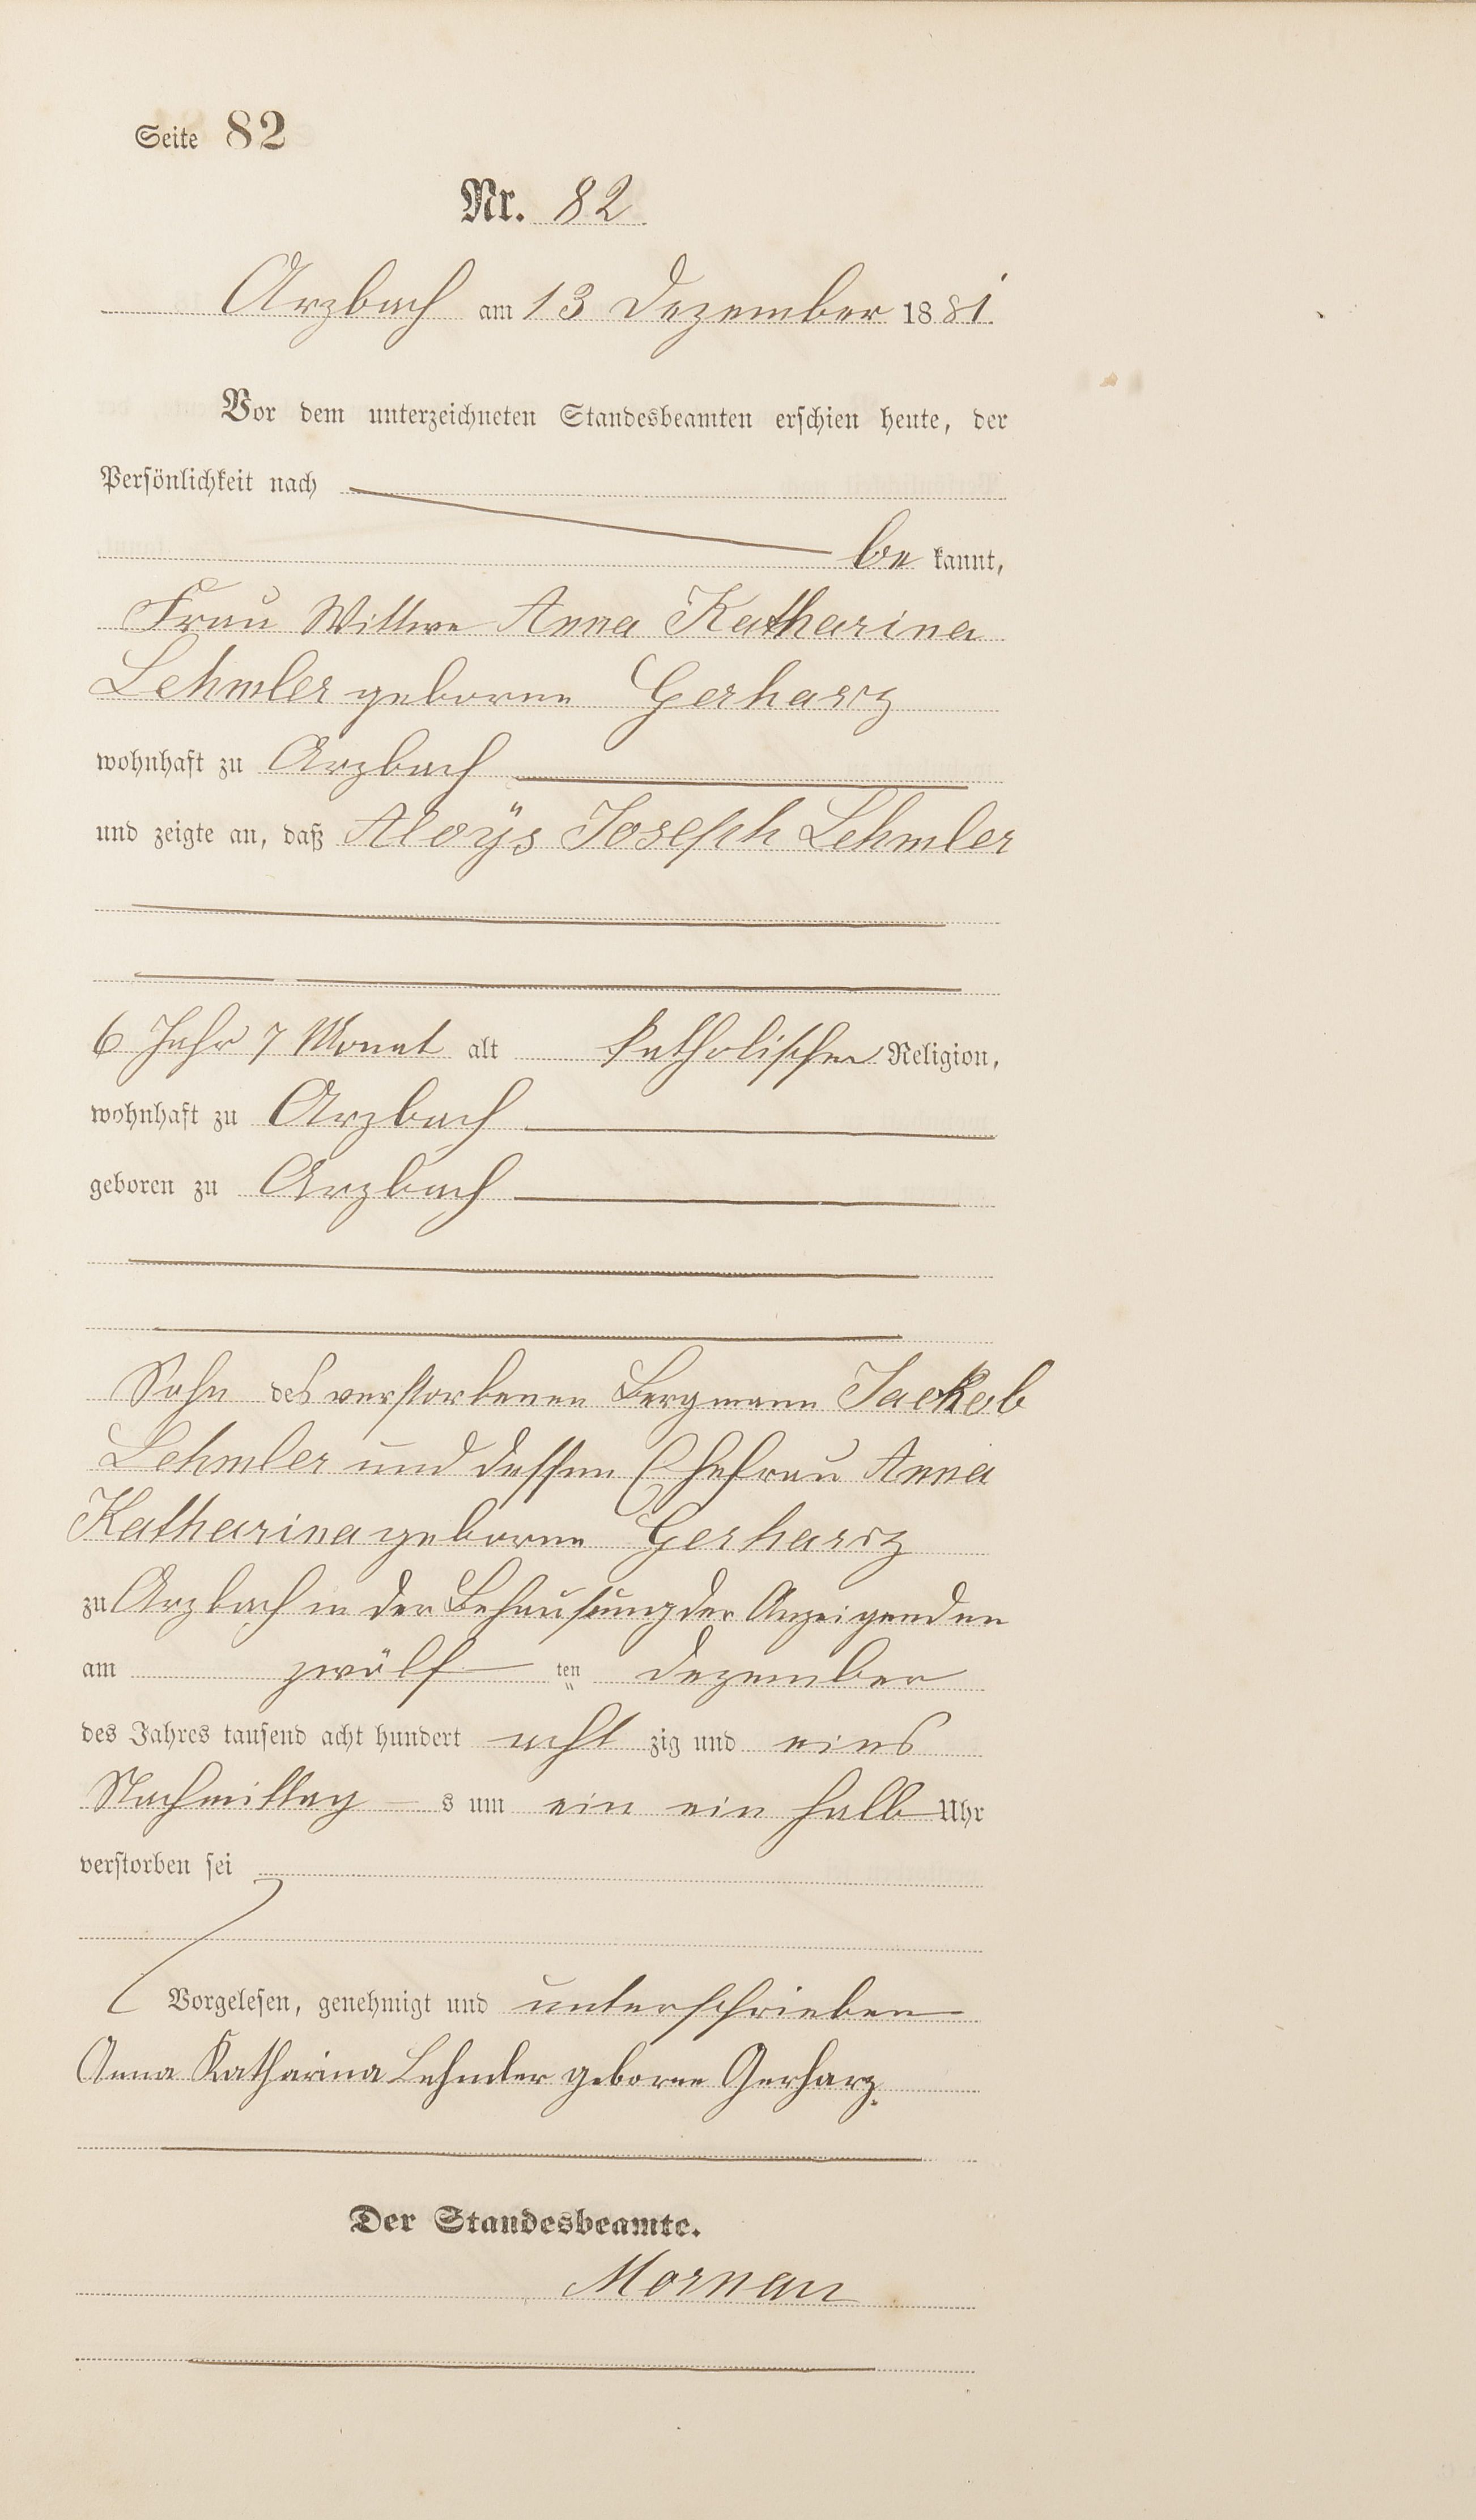 Seite 82
Nr. 82
Arzbach am 13 Dezember 1881.
Vor dem unterzeichneten Standesbeamten erschien heute, der
Persönlichkeit nach
be kannt,
Frau Wittwe Anna Katharina
Lehmler geborne Gerharz
wohnhaft zu Arzbach
und zeigte an, daß Aloÿs Joseph Lehmler
6 Jahr 7 Monat alt katholischer Religion,
wohnhaft zu Arzbach
geboren zu Arzbach
Sohn des verstorbenen Bergmann Jackob
Lehmler und dessen Ehefrau Anna
Katharina geborne Gerharz
zu Arzbach in der Behausung der Anzeigenden
am zwölf ten Dezember
des Jahres tausend acht hundert acht zig und eins
Nachmittag s um ein ein halb Uhr
verstorben sei
Vorgelesen, genehmigt und unterschrieben
Anna Katharina Lehmler geborne Gerharz.
Der Standesbeamte.